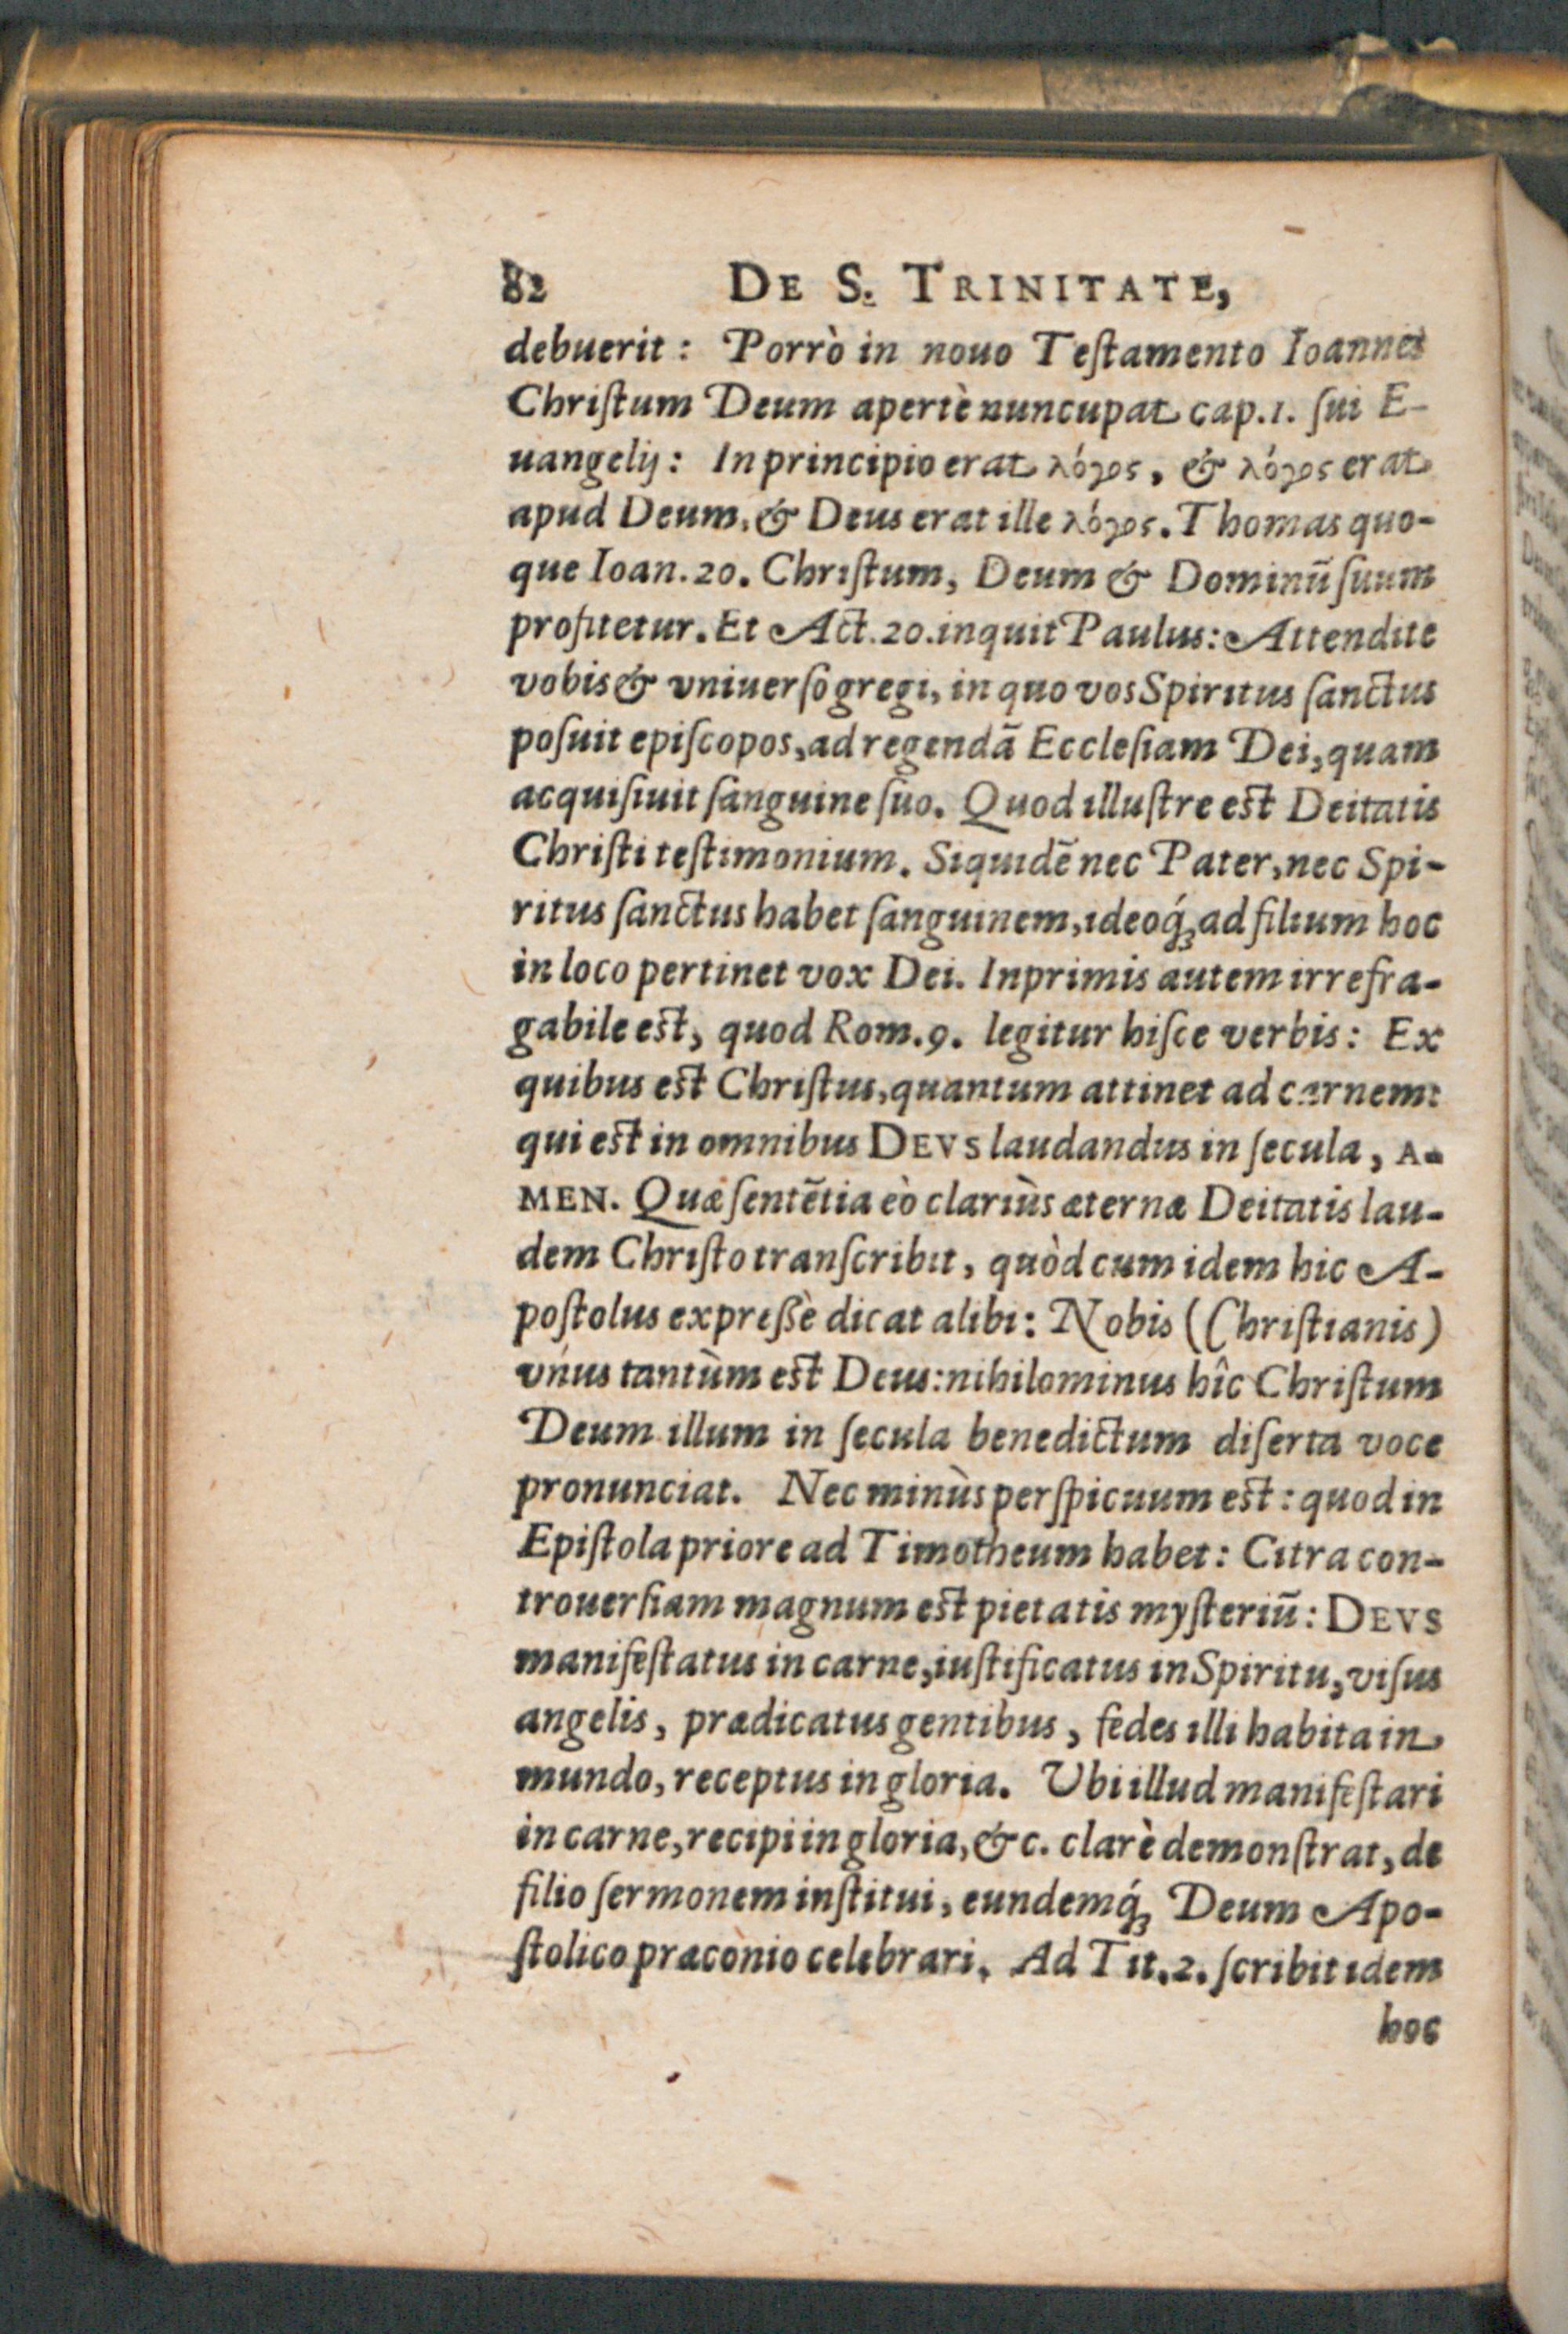 82 DE S. TRINITATE,
debuerit: Porrò in nouo Teſtamento Ioannes
Chriſtum Deum apertè nuncupat cap.1. ſui E-
uangelij: In principio erat λόγος, & λόγος erat
apud Deum, & Deus erat ille λόγος. Thomas quo-
que Ioan.20. Chriſtum, Deum & Dominũ ſuum
profitetur. Et Act.20. inquit Paulus: Attendite
vobis & vniuerſo gregi, in quo vos Spiritus ſanctus
poſuit epiſcopos, ad regendã Eccleſiam Dei, quam
acquiſiuit ſanguine ſuo. Quod illuſtre est Deitatis
Chriſti teſtimonium. Siquidẽ nec Pater, nec Spi-
ritus ſanctus habet ſanguinem, ideoq́; ad filium hoc
in loco pertinet vox Dei. Inprimis autem irrefra-
gabile est, quod Rom.9. legitur hiſce verbis: Ex
quibus est Chriſtus, quantum attinet ad carnem:
qui est in omnibus DEVS laudandus in ſecula, A-
MEN. Quæ ſentẽtia eò clariùs æternæ Deitatis lau-
dem Chriſto tranſcribit, quòd cum idem hic A-
poſtolus expreßè dicat alibi: Nobis (Chriſtianis)
vnus tantùm est Deus: nihilominus hîc Chriſtum
Deum illum in ſecula benedictum diſerta voce
pronunciat. Nec minùs perſpicuum est: quod in
Epiſtola priore ad Timotheum habet: Citra con-
trouerſiam magnum est pietatis myſteriũ: DEVS
manifeſtatus in carne, iuſtificatus in Spiritu, viſus
angelis, prædicatus gentibus, fedes illi habita in
mundo, receptus in gloria. Vbi illud manifeſtari
in carne, recipi in gloria, &c. clarè demonſtrat, de
filio ſermonem inſtitui, eundemq́; Deum Apo-
ſtolico præconio celebrari. Ad Tit.2. ſcribit idem
hoc